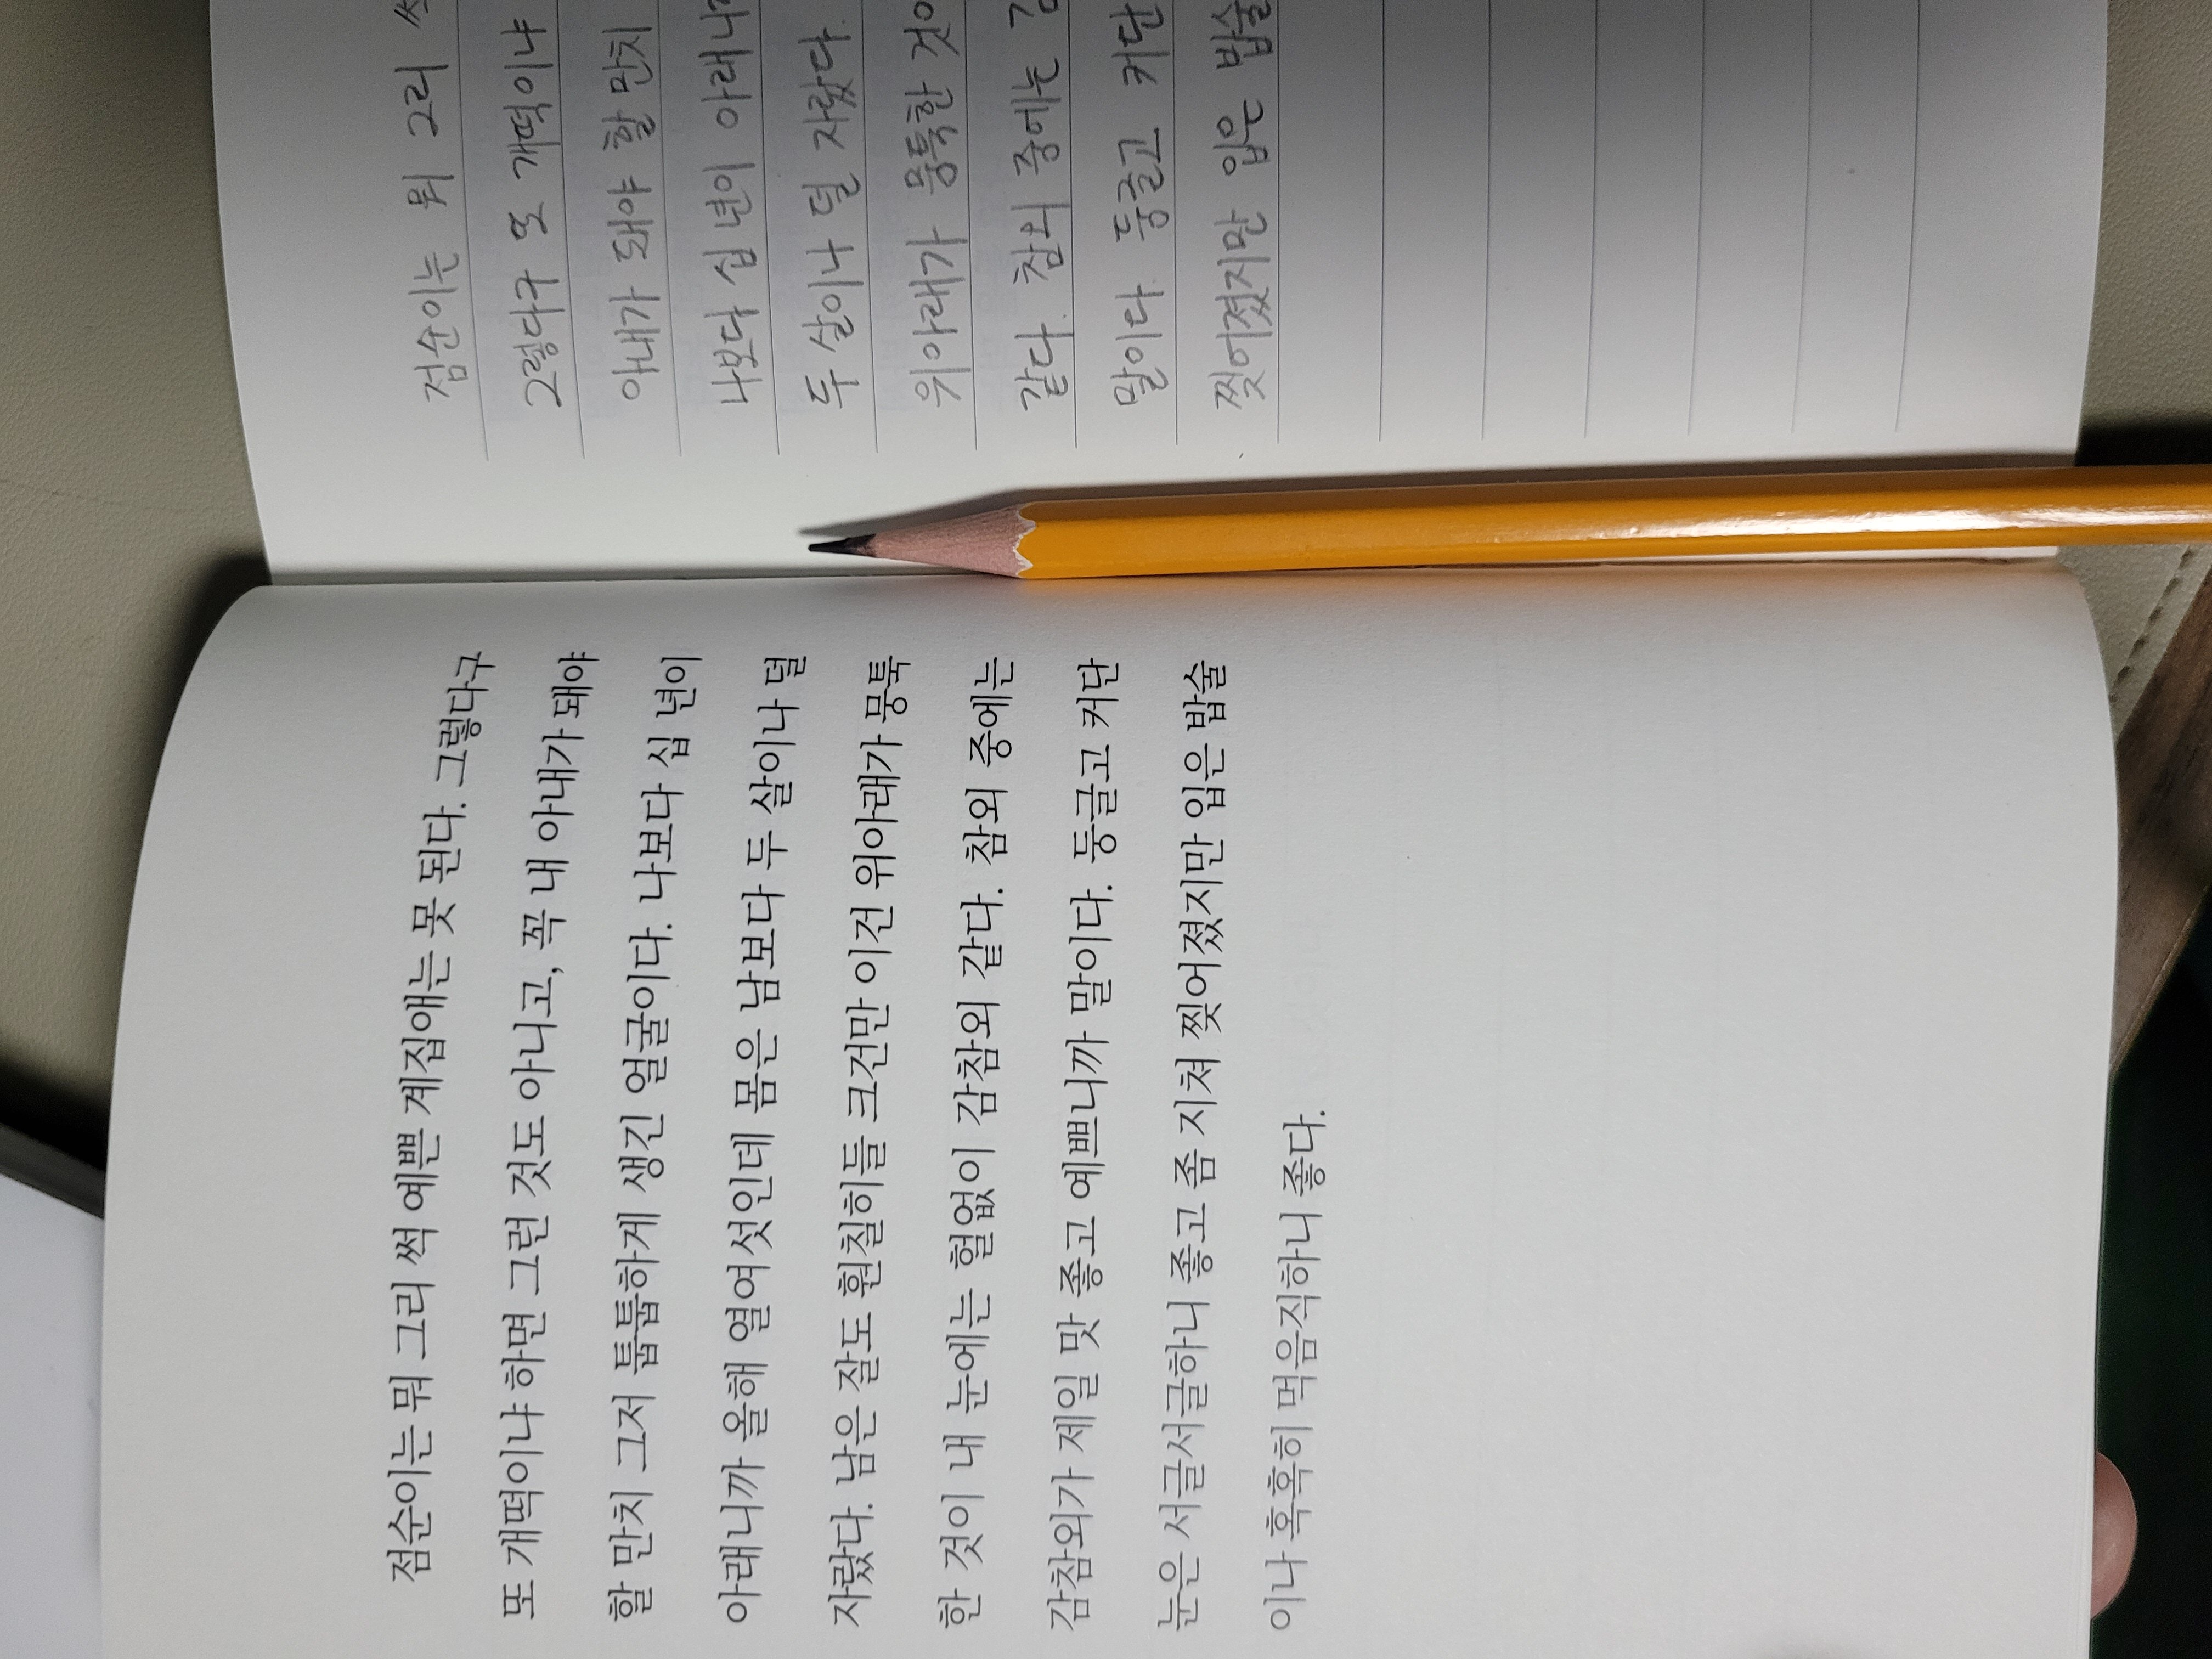 점순이는 뭐 그리 썩 예쁜 계집애는 못 된다. 그렇다구
또 개떡이냐 하면 그런 것도 아니고, 꼭 내 아내가 돼야
할 만치 그저 툽툽하게 생긴 얼굴이다. 나보다 십 년이
아래니까 올해 열여섯인데 몸은 남보다 두 살이나 덜
자랐다. 남은 잘도 훤칠히들 크건만 이건 위아래가 뭉툭
한 것이 내 눈에는 헐없이 감참외 같다. 참외 중에는
감참외가 제일 맛 좋고 예쁘니까 말이다. 둥글고 커단
눈은 서글서글하니 좋고 좀 지쳐 찢어졌지만 입은 밥술
이나 혹혹히 먹음직하니 좋다.
점순이는 뭐 그리
그렇다구 또 개떡이냐
아내가 돼야 할 만치
나보다 십 년이 아래니
두 살이나 덜 자랐다.
위아래가 뭉툭한 것이
같다. 참외 중에는
말이다. 둥글고 커단
찢어졌지만 입은 밥술